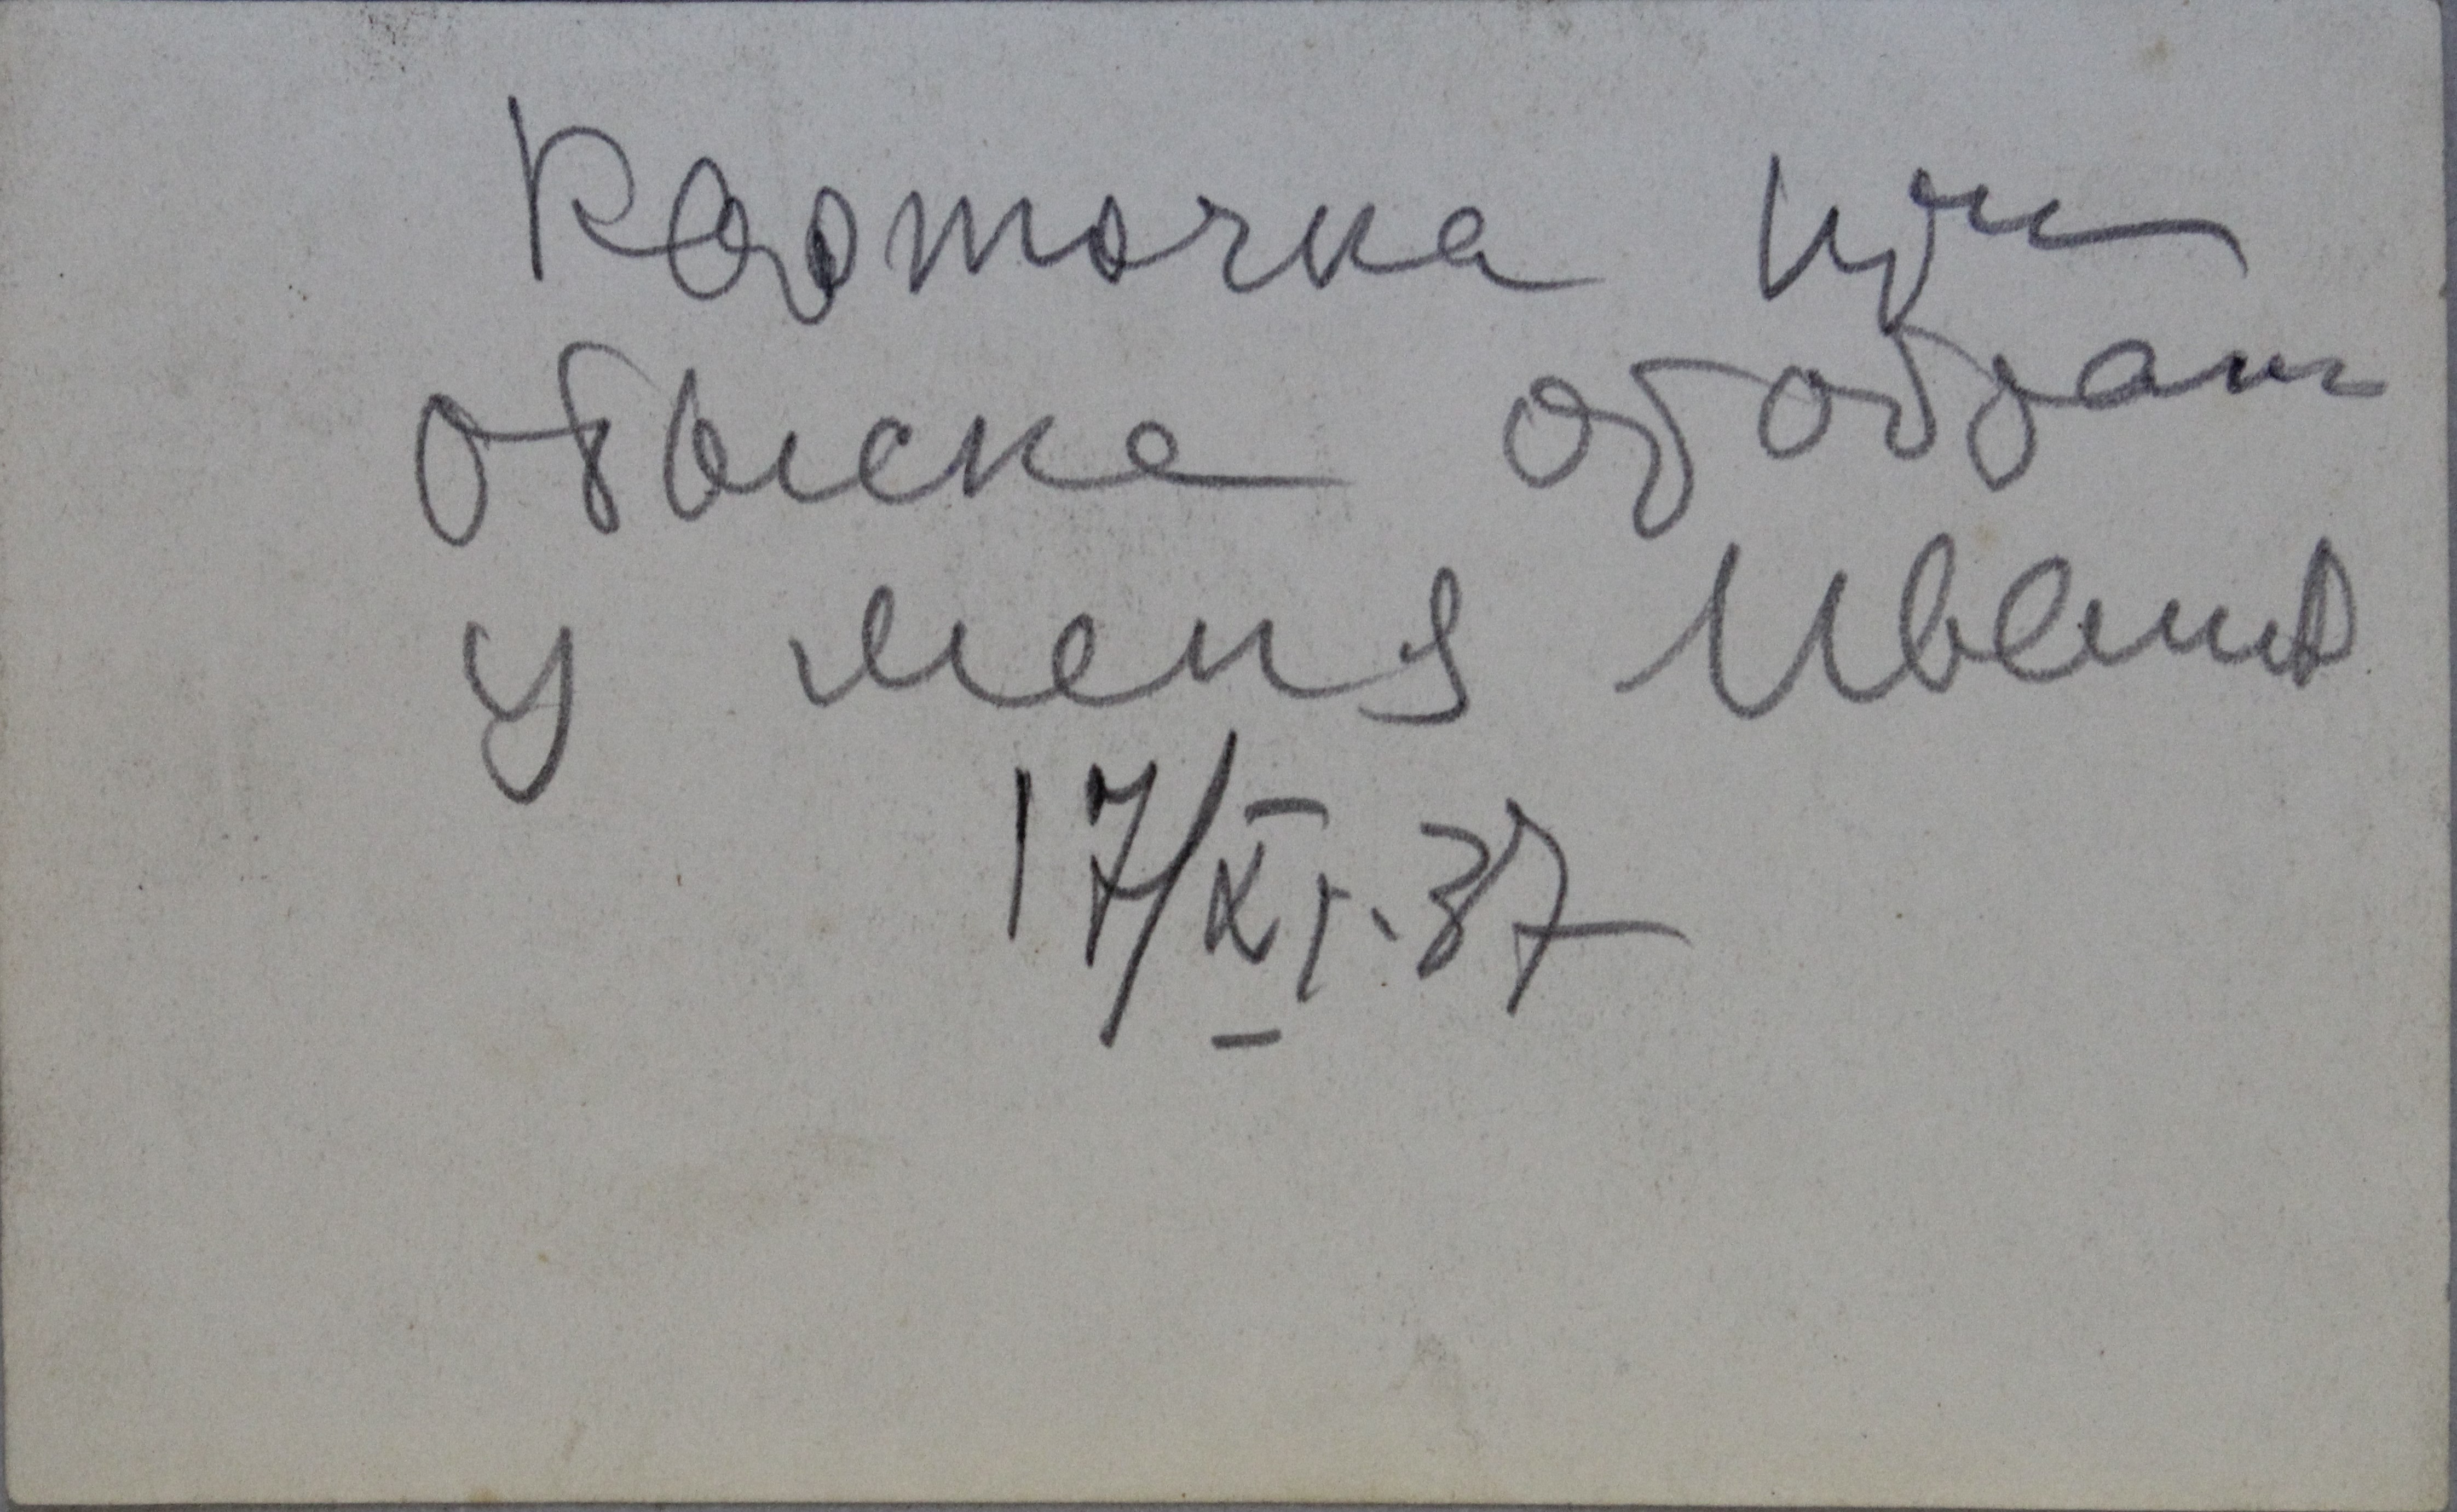 Карточка при
обыске отобран
у меня
17/XI.37